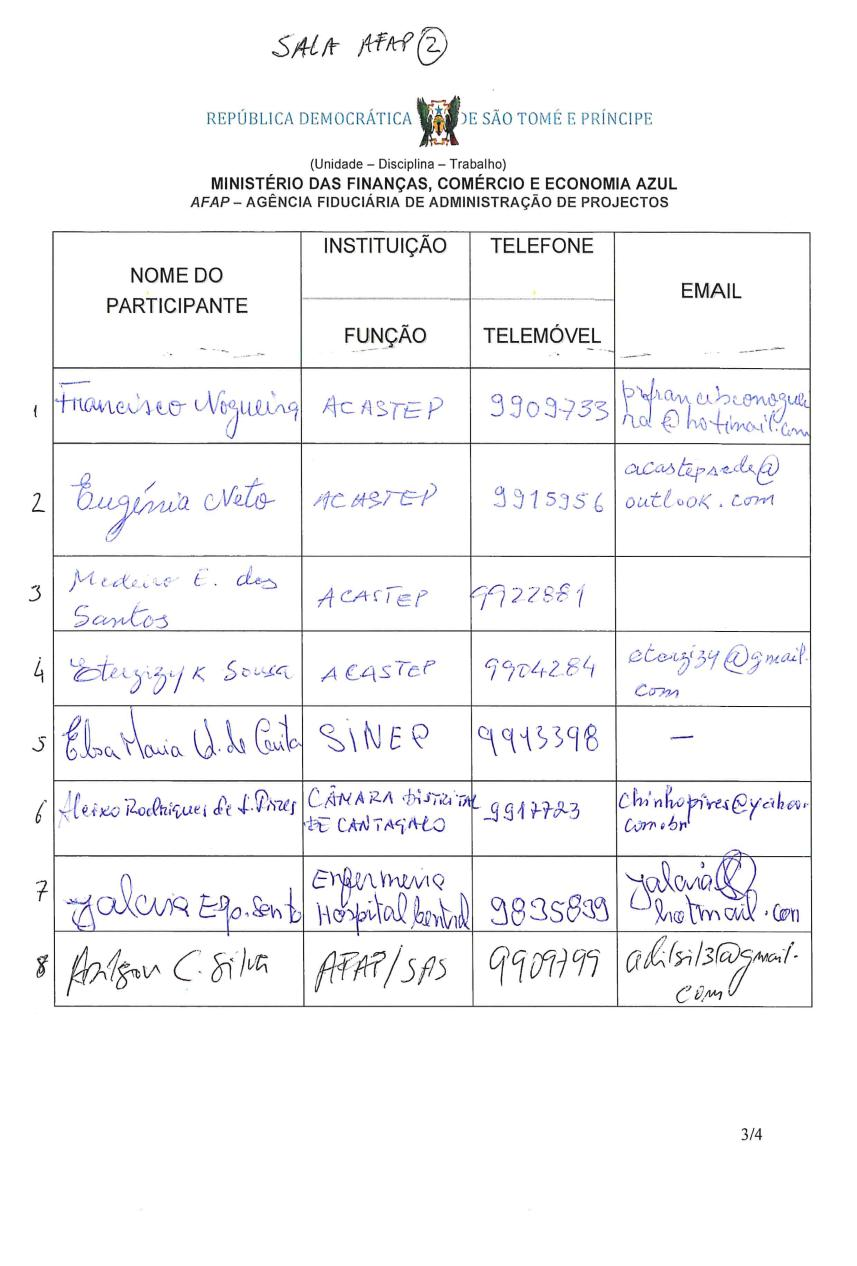 SALA AFAP 2
REPÚBLICA DEMOCRÁTICA DE SÃO TOMÉ E PRÍNCIPE
(Unidade – Disciplina – Trabalho)
MINISTÉRIO DAS FINANÇAS, COMÉRCIO E ECONOMIA AZUL
AFAP – AGÊNCIA FIDUCIÁRIA DE ADMINISTRAÇÃO DE PROJECTOS
NOME DO
PARTICIPANTE
INSTITUIÇÃO
FUNÇÃO
TELEFONE
TELEMÓVEL
EMAIL
1 Francisco Nogueira ACASTEP 9909733 prfrancisconoguei
ra@hotimail.com
2 Eugénia Neto ACASTEP 9915956 acastepsede@
outlook.com
3 Medeiro E. dos
Santos ACASTEP 9922881
4 Eterzizy K Sousa ACASTEP 9904284 eterzizy@gmail.
com
5 Elsa Maria de SINEP 9943398 —
6 Aleixo Rodrigues de S. Pires CÂMARA DISTRITAL
DE CANTAGALO 9917723 chinhopires@yahoo.
com.br
7 Yalcina Espo. Santo Enfermeria
Hospital Central 9835899 hotmail.com
8 C. Silva AFAP/SAS 9909799 adilsil3@gmail.
com
3/4